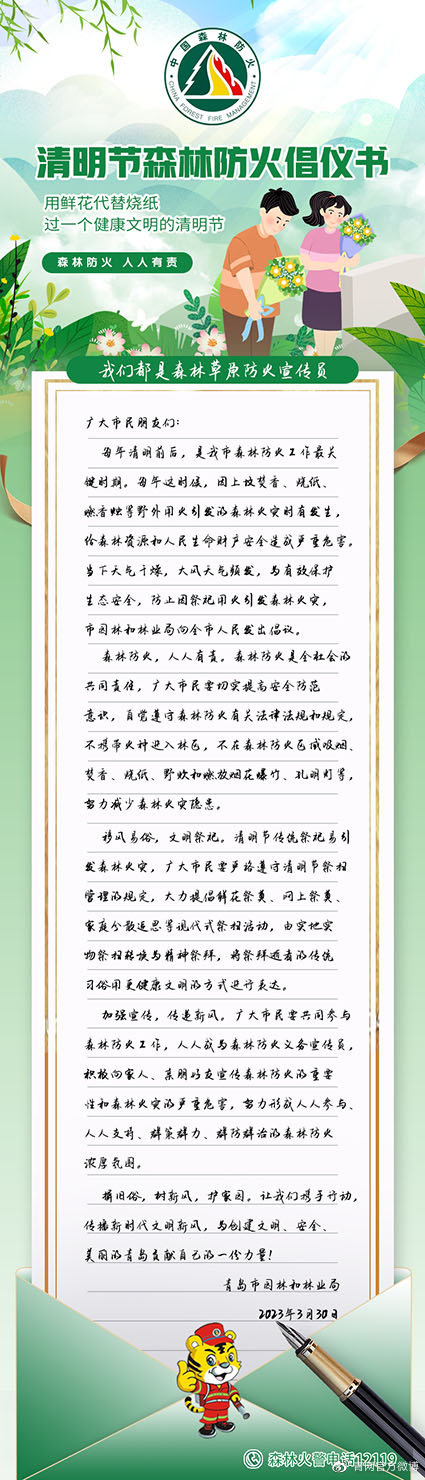 中国森林防火
CHINA FOREST FIRE MANAGEMENT
清明节森林防火倡仪书
用鲜花代替烧纸
过一个健康文明的清明节
森林防火 人人有责
我们都是森林草原防火宣传员
广大市民朋友们：
每年清明前后，是我市森林防火工作最关
键时期。每年这时候，因上坟焚香、烧纸、
燃香烛等野外用火引发的森林火灾时有发生，
给森林资源和人民生命财产安全造成严重危害。
当下天气干燥，大风天气频发，为有效保护
生态安全，防止因祭祀用火引发森林火灾，
市园林和林业局向全市人民发出倡议。
森林防火，人人有责。森林防火是全社会的
共同责任，广大市民要切实提高安全防范
意识，自觉遵守森林防火有关法律法规和规定，
不携带火种进入林区，不在森林防火区域吸烟、
焚香、烧纸、野炊和燃放烟花爆竹、孔明灯等，
努力减少森林火灾隐患。
移风易俗，文明祭祀。清明节传统祭祀易引
发森林火灾，广大市民要严格遵守清明节祭扫
管理的规定，大力提倡鲜花祭奠、网上祭奠、
家庭分散追思等现代式祭扫活动，由实地实
物祭扫转换为精神祭拜，将祭拜逝者的传统
习俗用更健康文明的方式进行表达。
加强宣传，传递新风。广大市民要共同参与
森林防火工作，人人成为森林防火义务宣传员，
积极向家人、亲朋好友宣传森林防火的重要
性和森林火灾的严重危害，努力形成人人参与、
人人支持、群策群力、群防群治的森林防火
浓厚氛围。
捐旧俗，树新风，护家园。让我们携手行动，
传播新时代文明新风，为创建文明、安全、
美丽的青岛贡献自己的一份力量！
青岛市园林和林业局
2023年3月30日
森林火警电话12119
青网官方微博